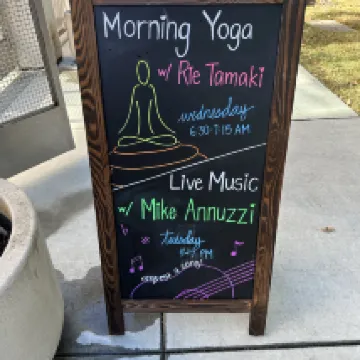 Morning Yoga
w/ Rie Tamaki
wednesday
6:30-7:15 AM
Live Music
w/ Mike Annuzzi
tuesday
PM
request a song!